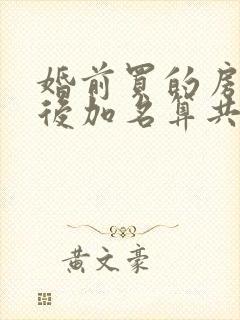 婚前買的房
後加名算共
黃文豪